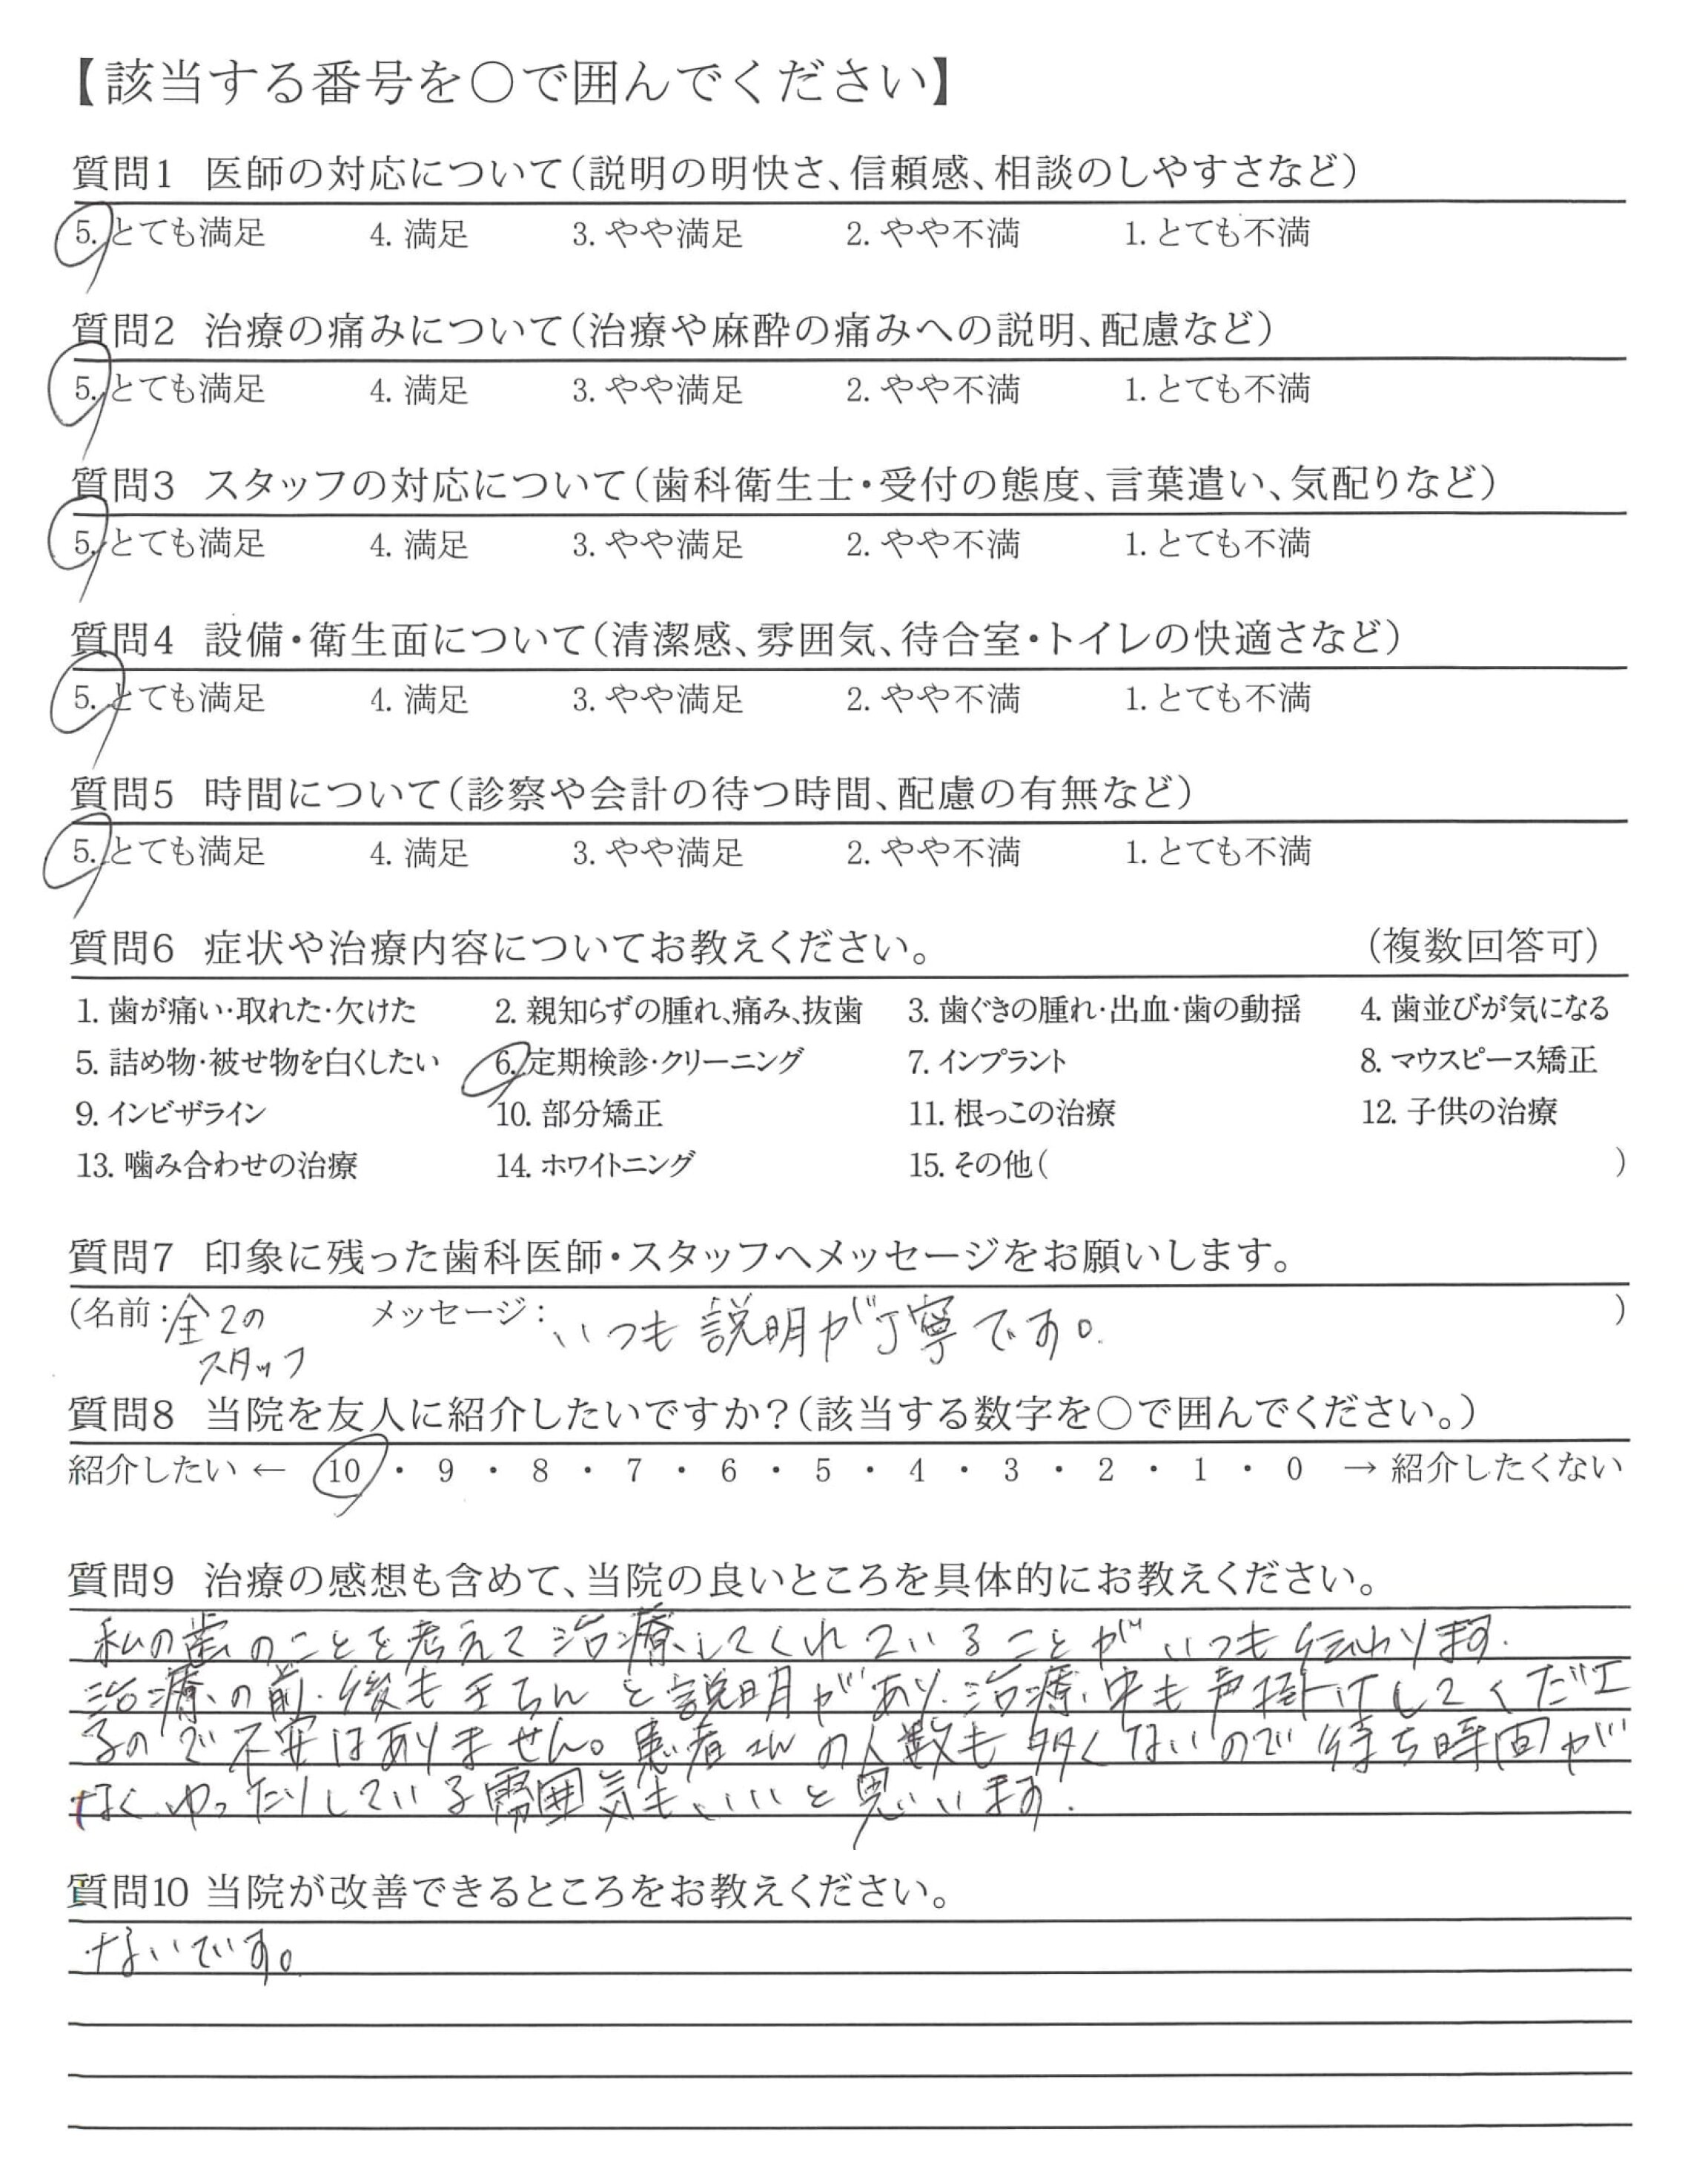 【該当する番号を○で囲んでください】
質問1 医師の対応について(説明の明快さ、信頼感、相談のしやすさなど)
5. とても満足 4. 満足 3. やや満足 2. やや不満 1. とても不満
質問2 治療の痛みについて(治療や麻酔の痛みへの説明、配慮など)
5. とても満足 4. 満足 3. やや満足 2. やや不満 1. とても不満
質問3 スタッフの対応について(歯科衛生士・受付の態度、言葉遣い、気配りなど)
5. とても満足 4. 満足 3. やや満足 2. やや不満 1. とても不満
質問4 設備・衛生面について(清潔感、雰囲気、待合室・トイレの快適さなど)
5. とても満足 4. 満足 3. やや満足 2. やや不満 1. とても不満
質問5 時間について(診察や会計の待つ時間、配慮の有無など)
5. とても満足 4. 満足 3. やや満足 2. やや不満 1. とても不満
質問6 症状や治療内容についてお教えください。 (複数回答可)
1. 歯が痛い・取れた・欠けた 2. 親知らずの腫れ、痛み、抜歯 3. 歯ぐきの腫れ・出血・歯の動揺 4. 歯並びが気になる
5. 詰め物・被せ物を白くしたい 6. 定期検診・クリーニング 7. インプラント 8. マウスピース矯正
9. インビザライン 10. 部分矯正 11. 根っこの治療 12. 子供の治療
13. 噛み合わせの治療 14. ホワイトニング 15. その他( )
質問7 印象に残った歯科医師・スタッフへメッセージをお願いします。
(名前:全ての メッセージ:いつも説明が丁寧です。 )
スタッフ
質問8 当院を友人に紹介したいですか?(該当する数字を○で囲んでください。)
紹介したい ← 10 ・ 9 ・ 8 ・ 7 ・ 6 ・ 5 ・ 4 ・ 3 ・ 2 ・ 1 ・ 0 → 紹介したくない
質問9 治療の感想も含めて、当院の良いところを具体的にお教えください。
私の歯のことを考えて治療してくれていることがいつも伝わります。
治療の前、後もきちんと説明があり、治療中も声掛けしてくださ
るので不安はありません。患者さんの人数も多くないので待ち時間が
なく、ゆったりしている雰囲気もいいと思います。
質問10 当院が改善できるところをお教えください。
ないです。